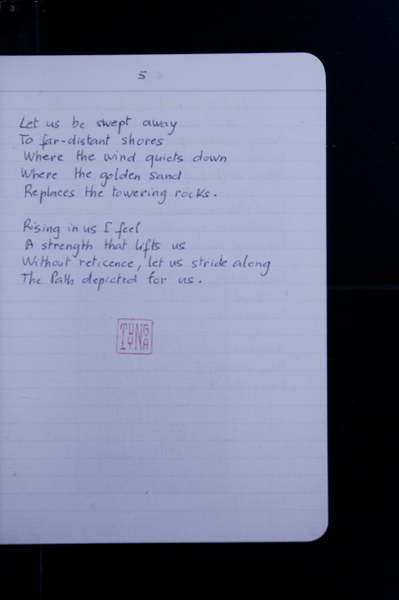 53
Let us be swept away
To far-distant shores
Where the wind quiets down
Where the golden sand
Replaces the towering rocks.
Rising in us I feel
A strength that lifts us
Without reticence, let us stride along
The Path depicted for us.